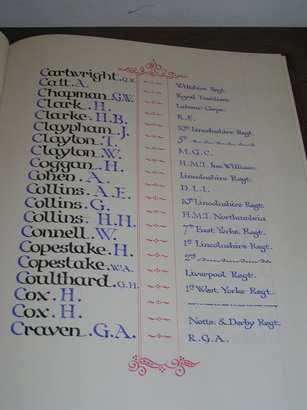 Cartwright. G.R. Wiltshire Regt.
Catt. A. Royal Fusiliers.
Chapman. G.W. Labour Corps.
Clark. H. R.E.
Clarke. H.B. 10th Lincolnshire Regt.
Claypham. J. 5th
Clayton. T. M.G.C.
Clayton. W. H.M.T. Ina William.
Coggan. H. Lincolnshire Regt.
Cohen. A. D.L.I.
Collins. A.E. 10th Lincolnshire Regt.
Collins. G. H.M.T. Northumbria
Collins. H.H. 7th East Yorks. Regt.
Connell. W. 1st Lincolnshire Regt.
Copestake. H. 2nd
Copestake. W.A. Liverpool Regt.
Coulthard. G.H. 1st West Yorks Regt.
Cox. H.
Cox. H. Notts: & Derby Regt.
Craven. G.A. R.G.A.